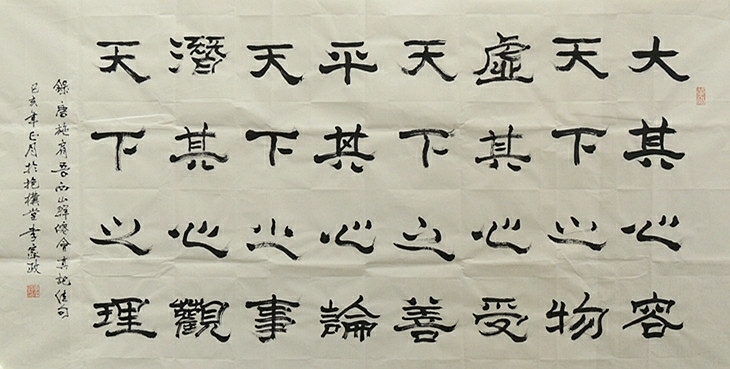 大其心容
天下之物
虛其心受
天下之善
平其心論
天下之事
潛其心觀
天下之理
錄唐施肩吾西山群僊會真記佳句
己亥年正月於抱樸堂李家政